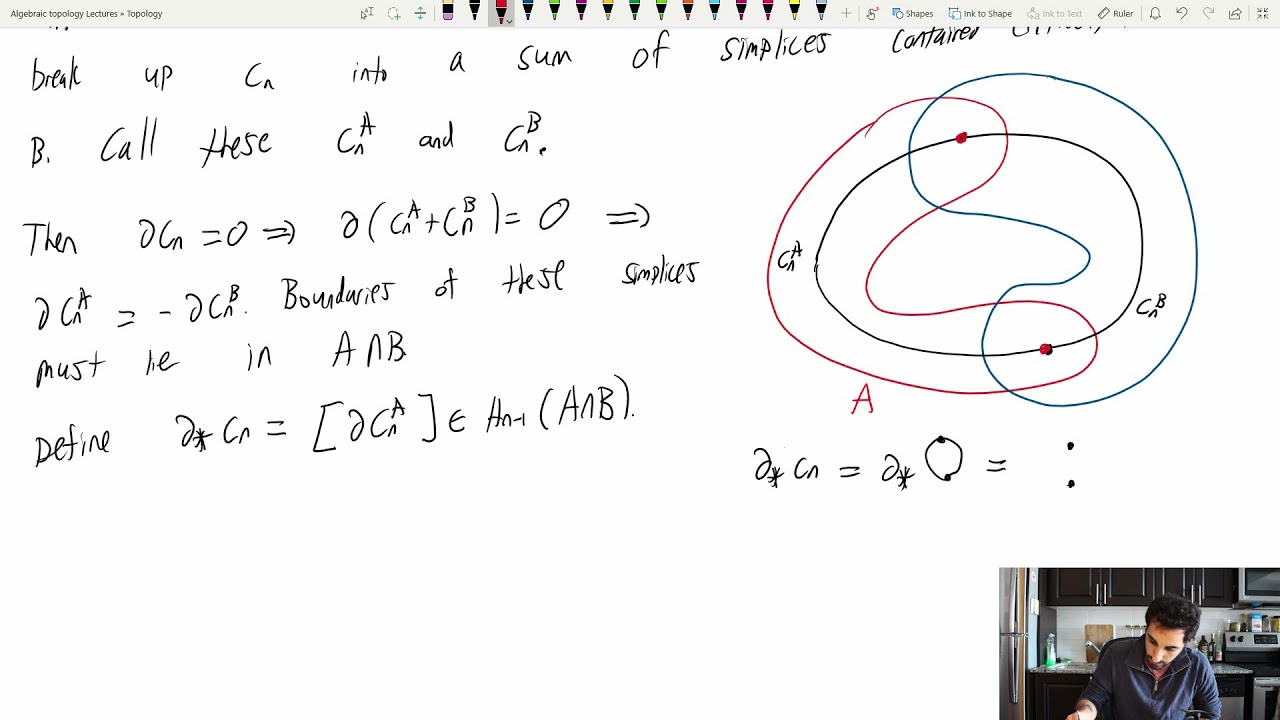 Algebraic topology Lectures » Topology
Shapes Ink to Shape Ink to Text Ruler
break up Cn into a sum of simplices contained
B. Call these Cn^A and Cn^B.
Then ∂Cn = 0 ⇒ ∂(Cn^A + Cn^B) = 0 ⇒
∂Cn^A = -∂Cn^B. Boundaries of these simplices
must lie in A∩B
Define ∂* Cn = [∂Cn^A] ∈ Hn-1 (A∩B).
Cn^A
Cn^B
A
∂* Cn = ∂* =